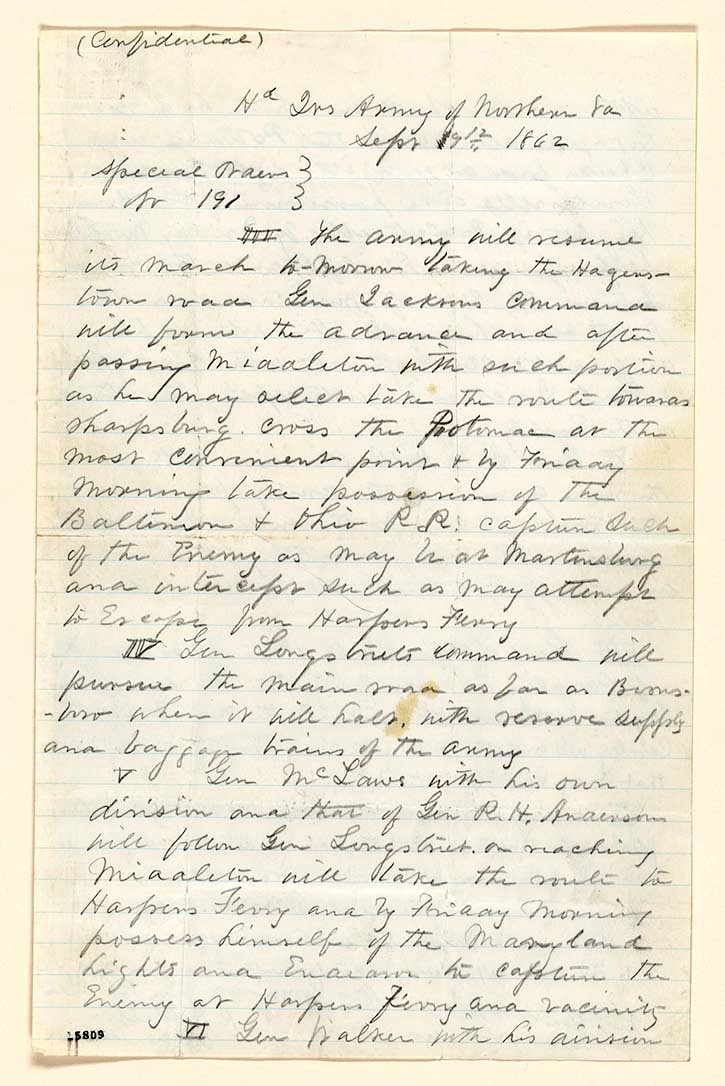 (Confidential)
Hd Qrs Army of Northern Va
Sept 9th 1862
Special Orders }
No 191 }
III The army will resume
its march to-morrow taking the Hagers-
town road Gen Jacksons command
will form the advance and after
passing Middleton with such portion
as he may select take the route towards
Sharpsburg. cross the Potomac at the
most convenient point & by Friday
Morning take possession of the
Baltimore & Ohio R.R. capture such
of the Enemy as may be at Martinsburg
and intercept such as may attempt
to Escape from Harpers Ferry
IV Gen Longstreets command will
pursue the main road as far as Boons-
-boro where it will halt. with reserve supply
and baggage trains of the army
V Gen McLaws with his own
division and that of Gen R. H. Anderson
will follow Gen Longstreet. on reaching
Middleton will take the route to
Harpers Ferry and by Friday Morning
possess himself of the Maryland
hights and Endeavor to capture the
Enemy at Harpers Ferry and vacinity
VI Gen Walker with his division
15809